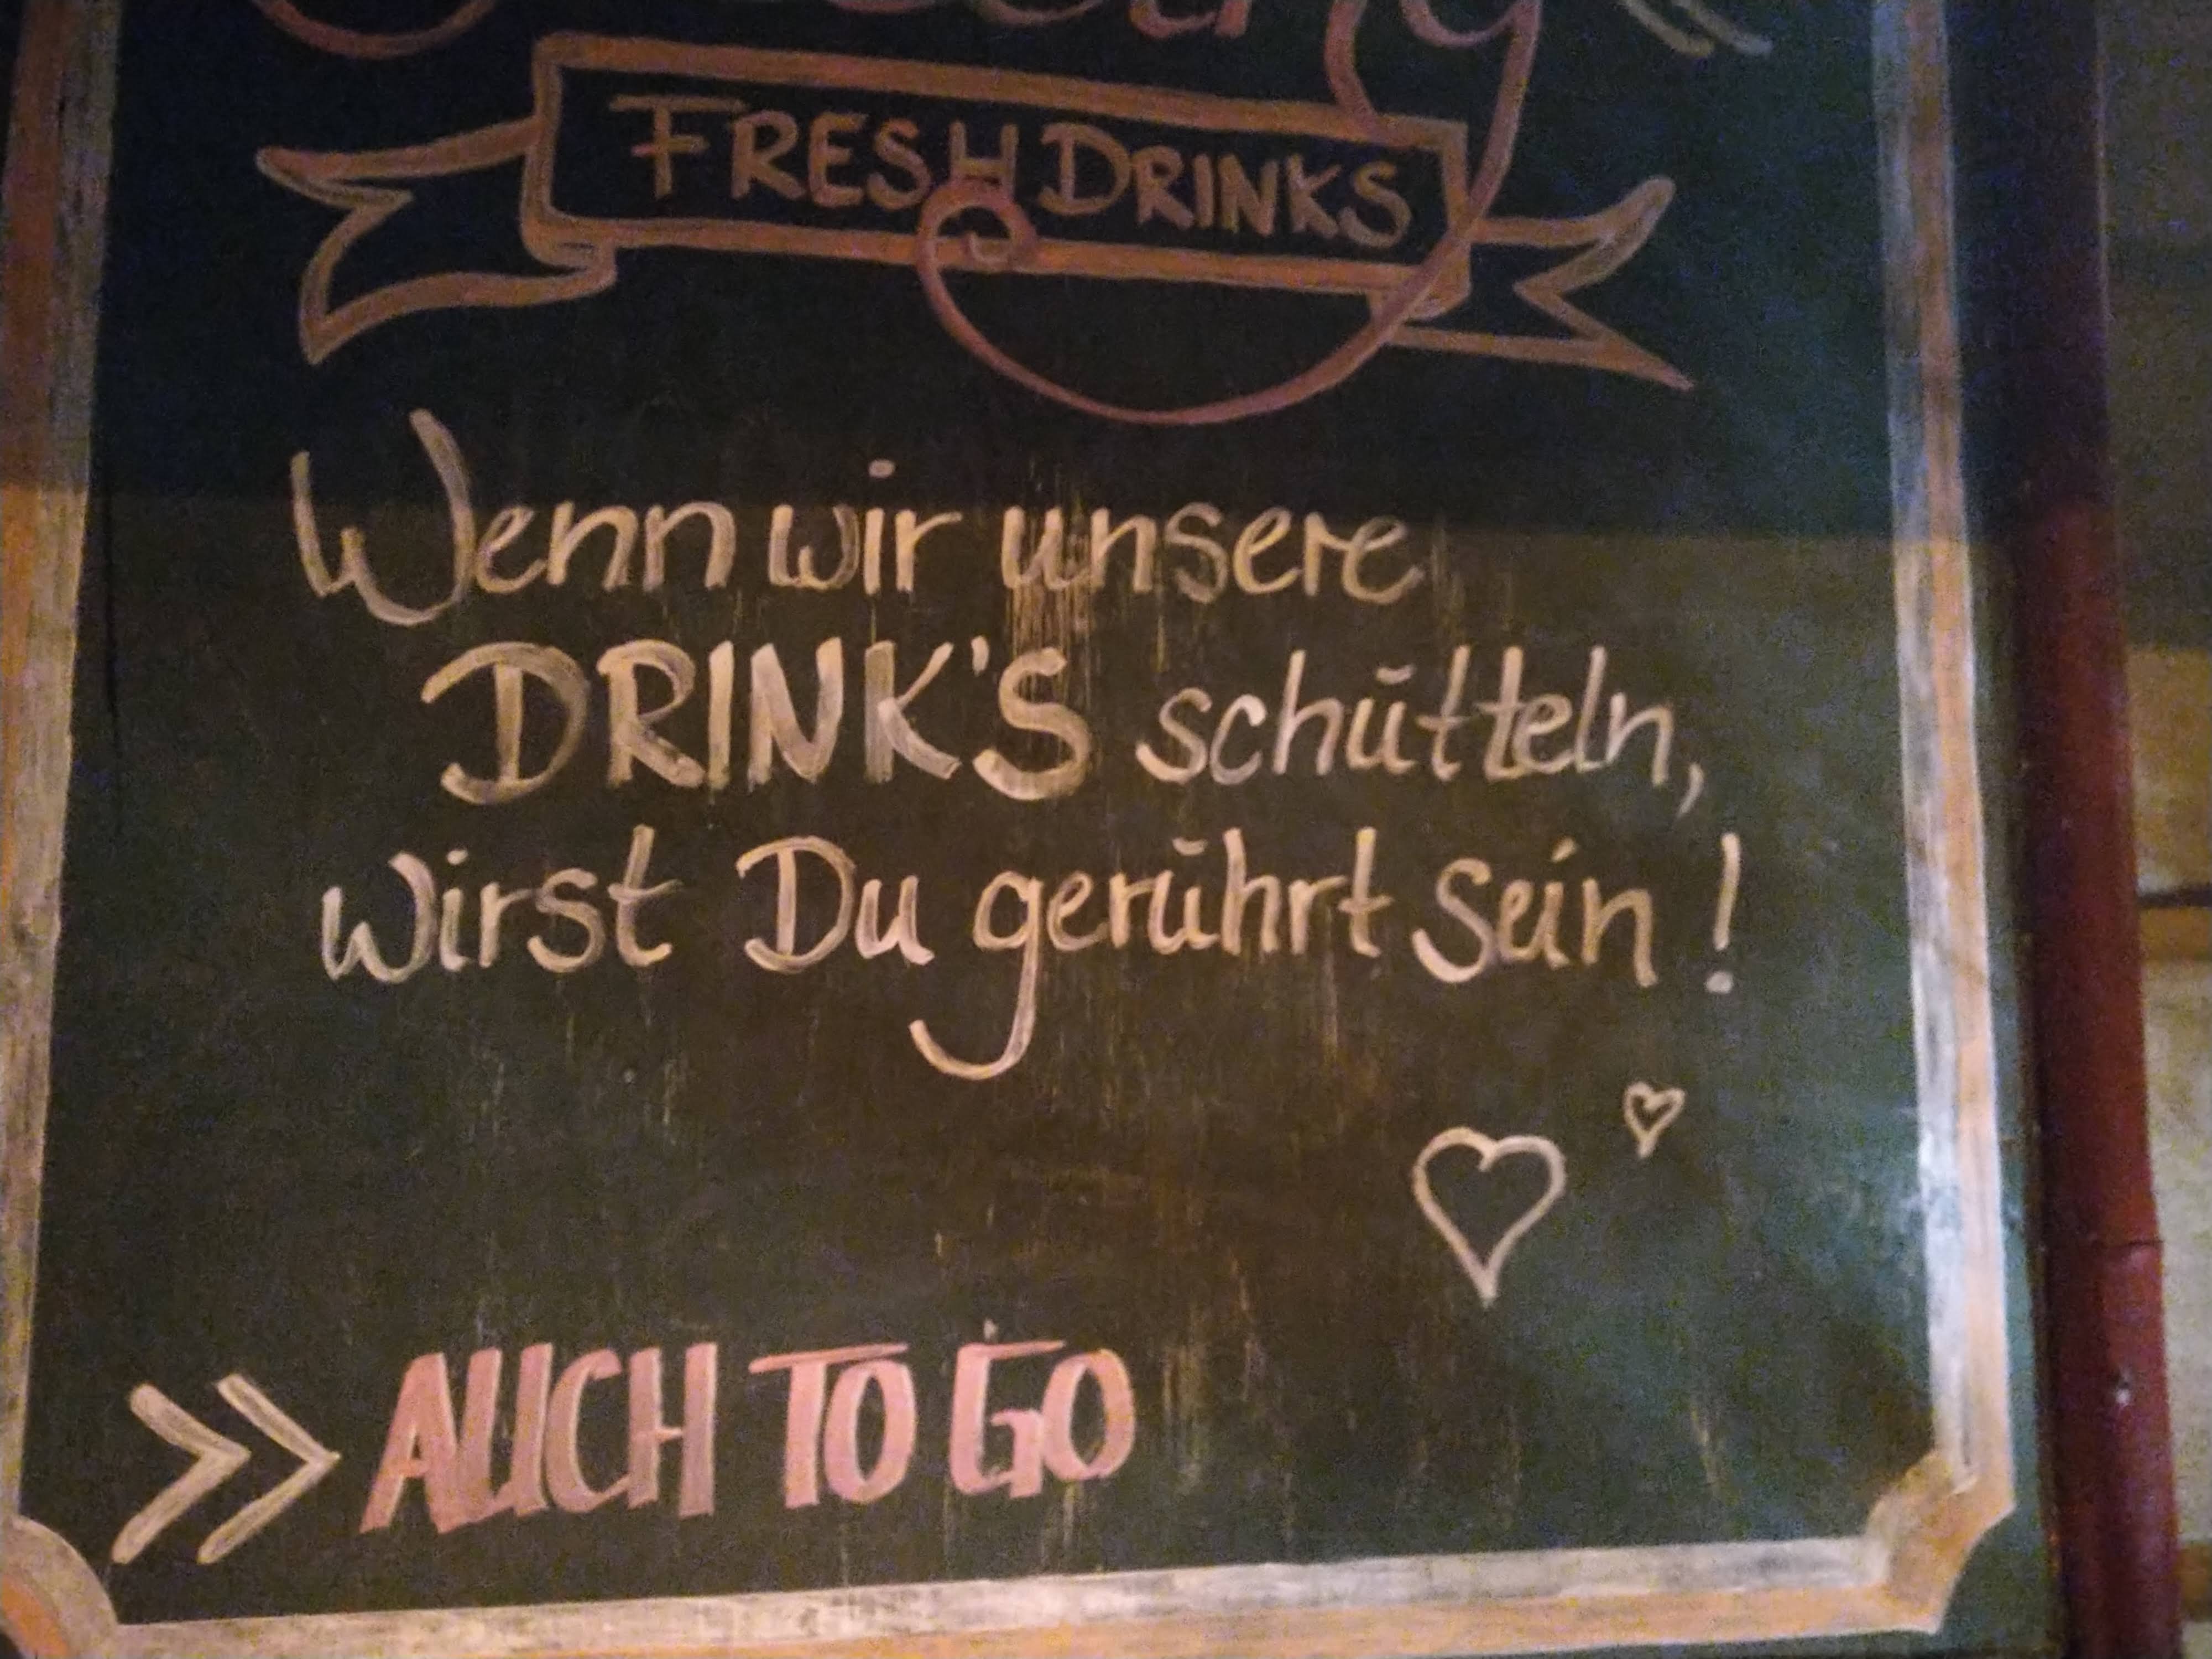 FRESH DRINKS
Wenn wir unsere
DRINK'S schütteln,
wirst Du gerührt sein!
>> AUCH TO GO